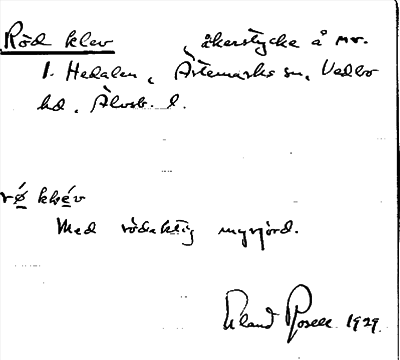 Röd klev, åkerstycke å nr.
1. Hedalen, Ärtemarks sn, Vedbo
hd, Älvsb. l.
rǿ klév
Med rödaktig myrjord.
Erland Rosell 1929.